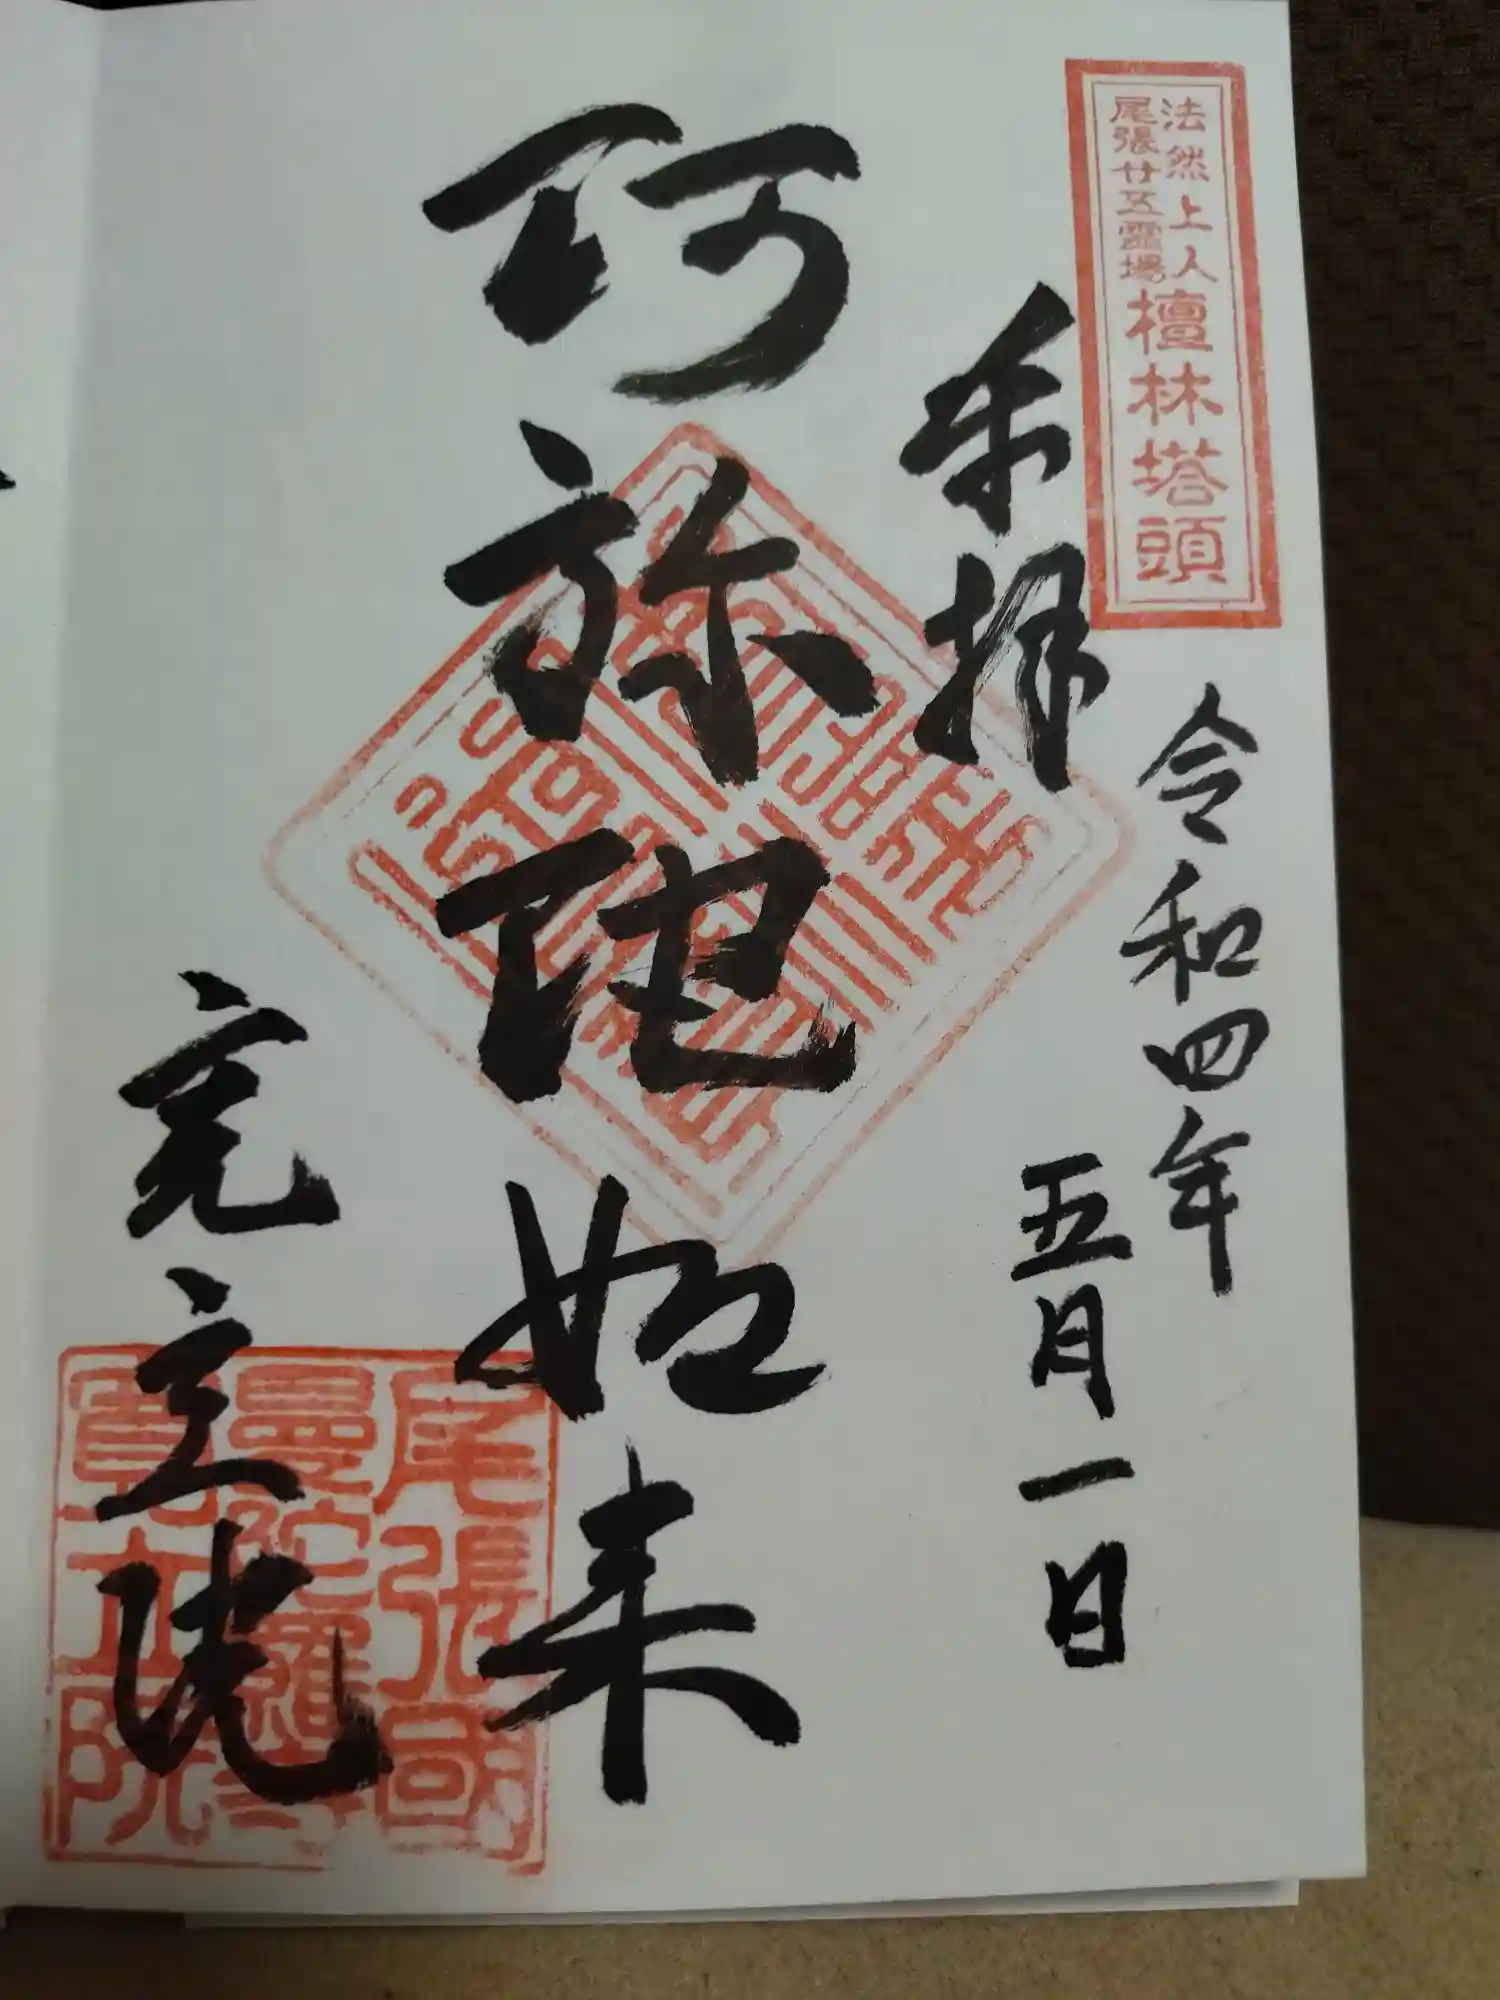 法然上人
尾張廿五霊場
檀林塔頭
令和四年
五月一日
奉拝
阿弥陀如来
尾張國
曼陀羅寺
寶立院
宝立院